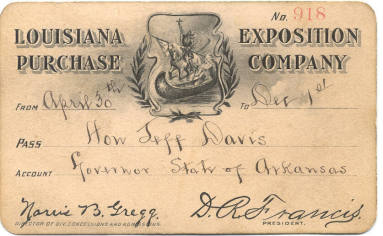 No. 918
LOUISIANA EXPOSITION
PURCHASE COMPANY
FROM April 30th TO Dec 1st
PASS Hon Jeff Davis
ACCOUNT Governor State of Arkansas
Norris B. Gregg. D. R. Francis.
DIRECTOR OF DIV. CONCESSIONS AND ADMISSIONS. PRESIDENT.